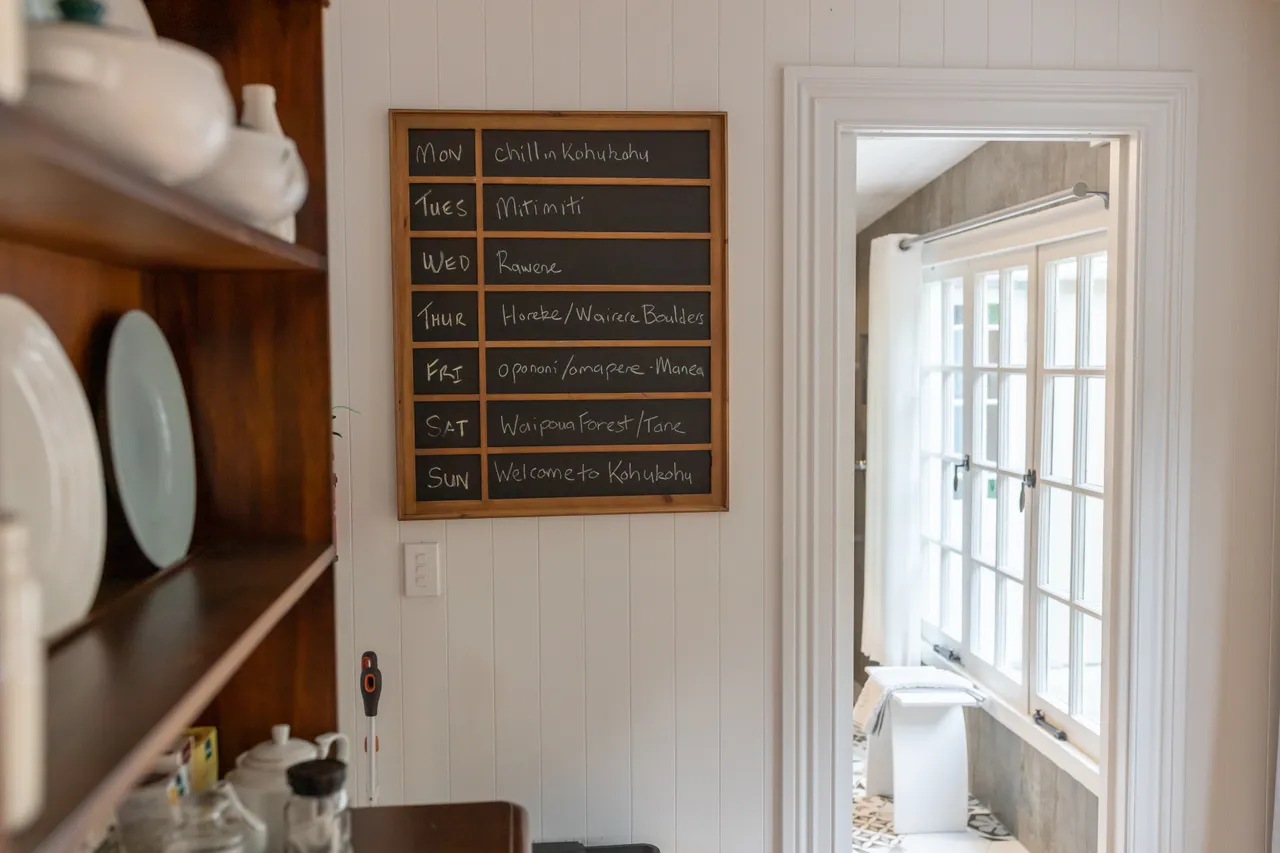 MON chillin Kohukohu
TUES Mitimiti
WED Rawene
THUR Horeke/Wairere Boulders
FRI opononi/omapere - Manea
SAT Waipoua Forest/Tane
SUN Welcome to Kohukohu